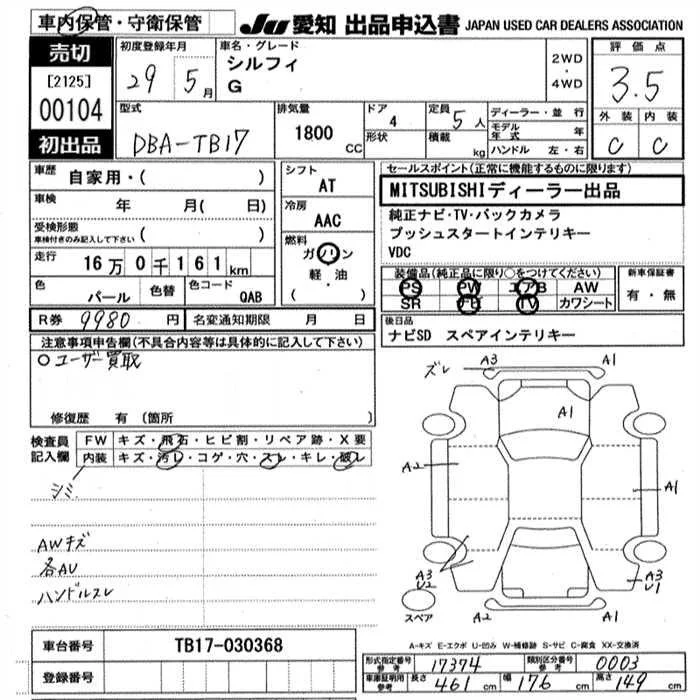 車内保管・守衛保管
JU 愛知 出品申込書 JAPAN USED CAR DEALERS ASSOCIATION
売切
[2125]
00104
初出品
初度登録年月
29 5月
車名・グレード
シルフィ
G
2WD
・
4WD
評価点
3.5
外装 内装
C C
型式
DBA-TB17
排気量
1800 CC
ドア
4
形状
定員
5人
積載
kg
ディーラー・並行
モデル年式 年
ハンドル 左・右
車歴
自家用・( )
車検
年 月( 日)
受検形態
車検付きのみ記入して下さい ( )
走行
16万0千161km
色
パール
色替
色コード
QAB
R券 9980 円
名変通知期限 月 日
シフト
AT
冷房
AAC
燃料
ガソリン
軽・油
( )
セールスポイント(正常に機能するものに限ります)
MITSUBISHIディーラー出品
純正ナビ・TV・バックカメラ
プッシュスタートインテリキー
VDC
装備品(純正品に限り○をつけてください)
PS PW エアB AW
SR FD TV カワシート
新車保証書
有・無
後日品
ナビSD スペアインテリキー
注意事項申告欄(不具合内容等は具体的に記入して下さい)
○ユーザー買取
修復歴 有 (箇所 )
検査員記入欄
FW キズ・飛石・ヒビ割・リペア跡・X要
内装 キズ・汚レ・コゲ・穴・スレ・キレ・破レ
シミ
AWキズ
各AU
ハンドルスレ
ズレ
A3
A1
A1
A2
A1
A3
U2
A3
U1
A2
スペア
A-キズ E-エクボ U-凹み W-補修跡 S-サビ C-腐食 XX-交換済
車台番号 TB17-030368
登録番号
形式指定番号 参考 17374
類別区分番号 参考 0003
車庫証明用 参考 長さ 461 cm 幅 176 cm 高さ 149 cm